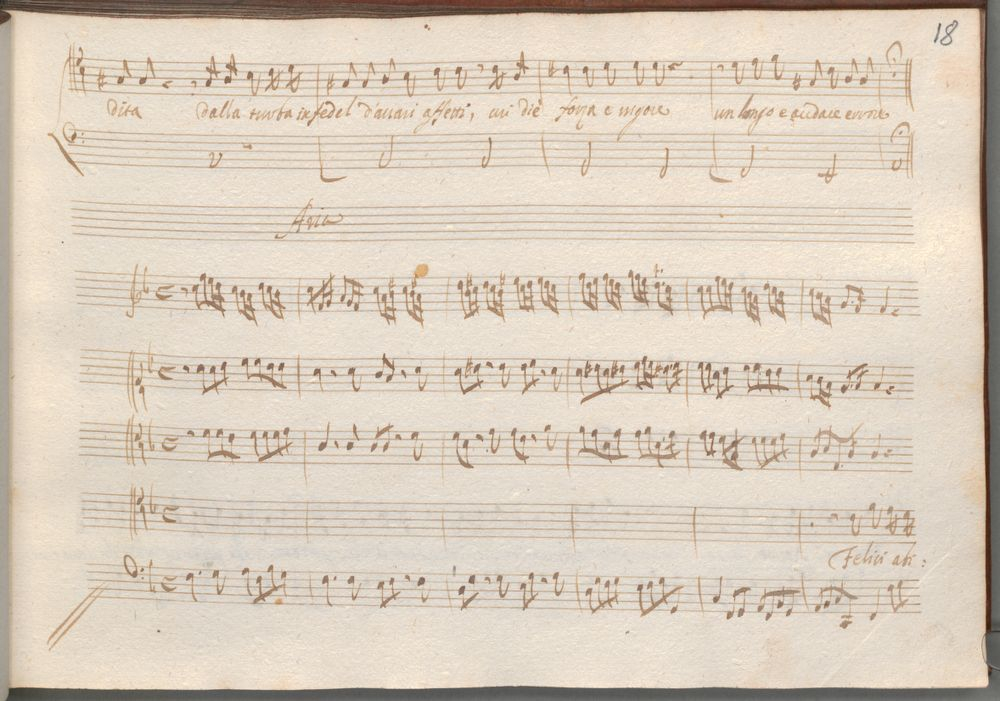 18
dita dalla turba infedel d'avari affetti, cui diè forza e vigore un lungo e audace errore
Aria
Felici abi: